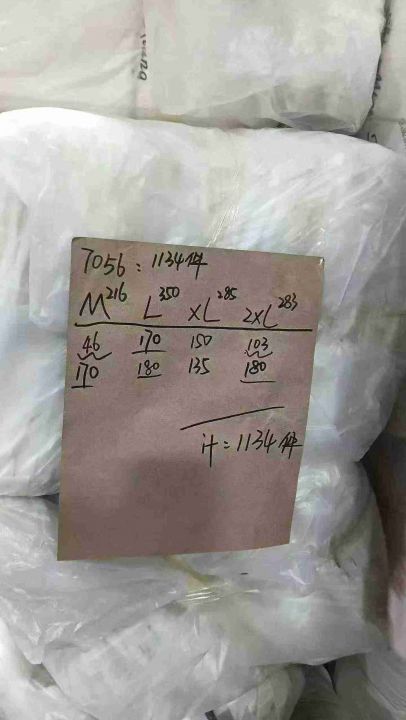 7056: 1134件
M²¹⁶ L³⁵⁰ XL²⁸⁵ 2XL²⁸³
46 170 150 103
170 180 135 180
计=1134件